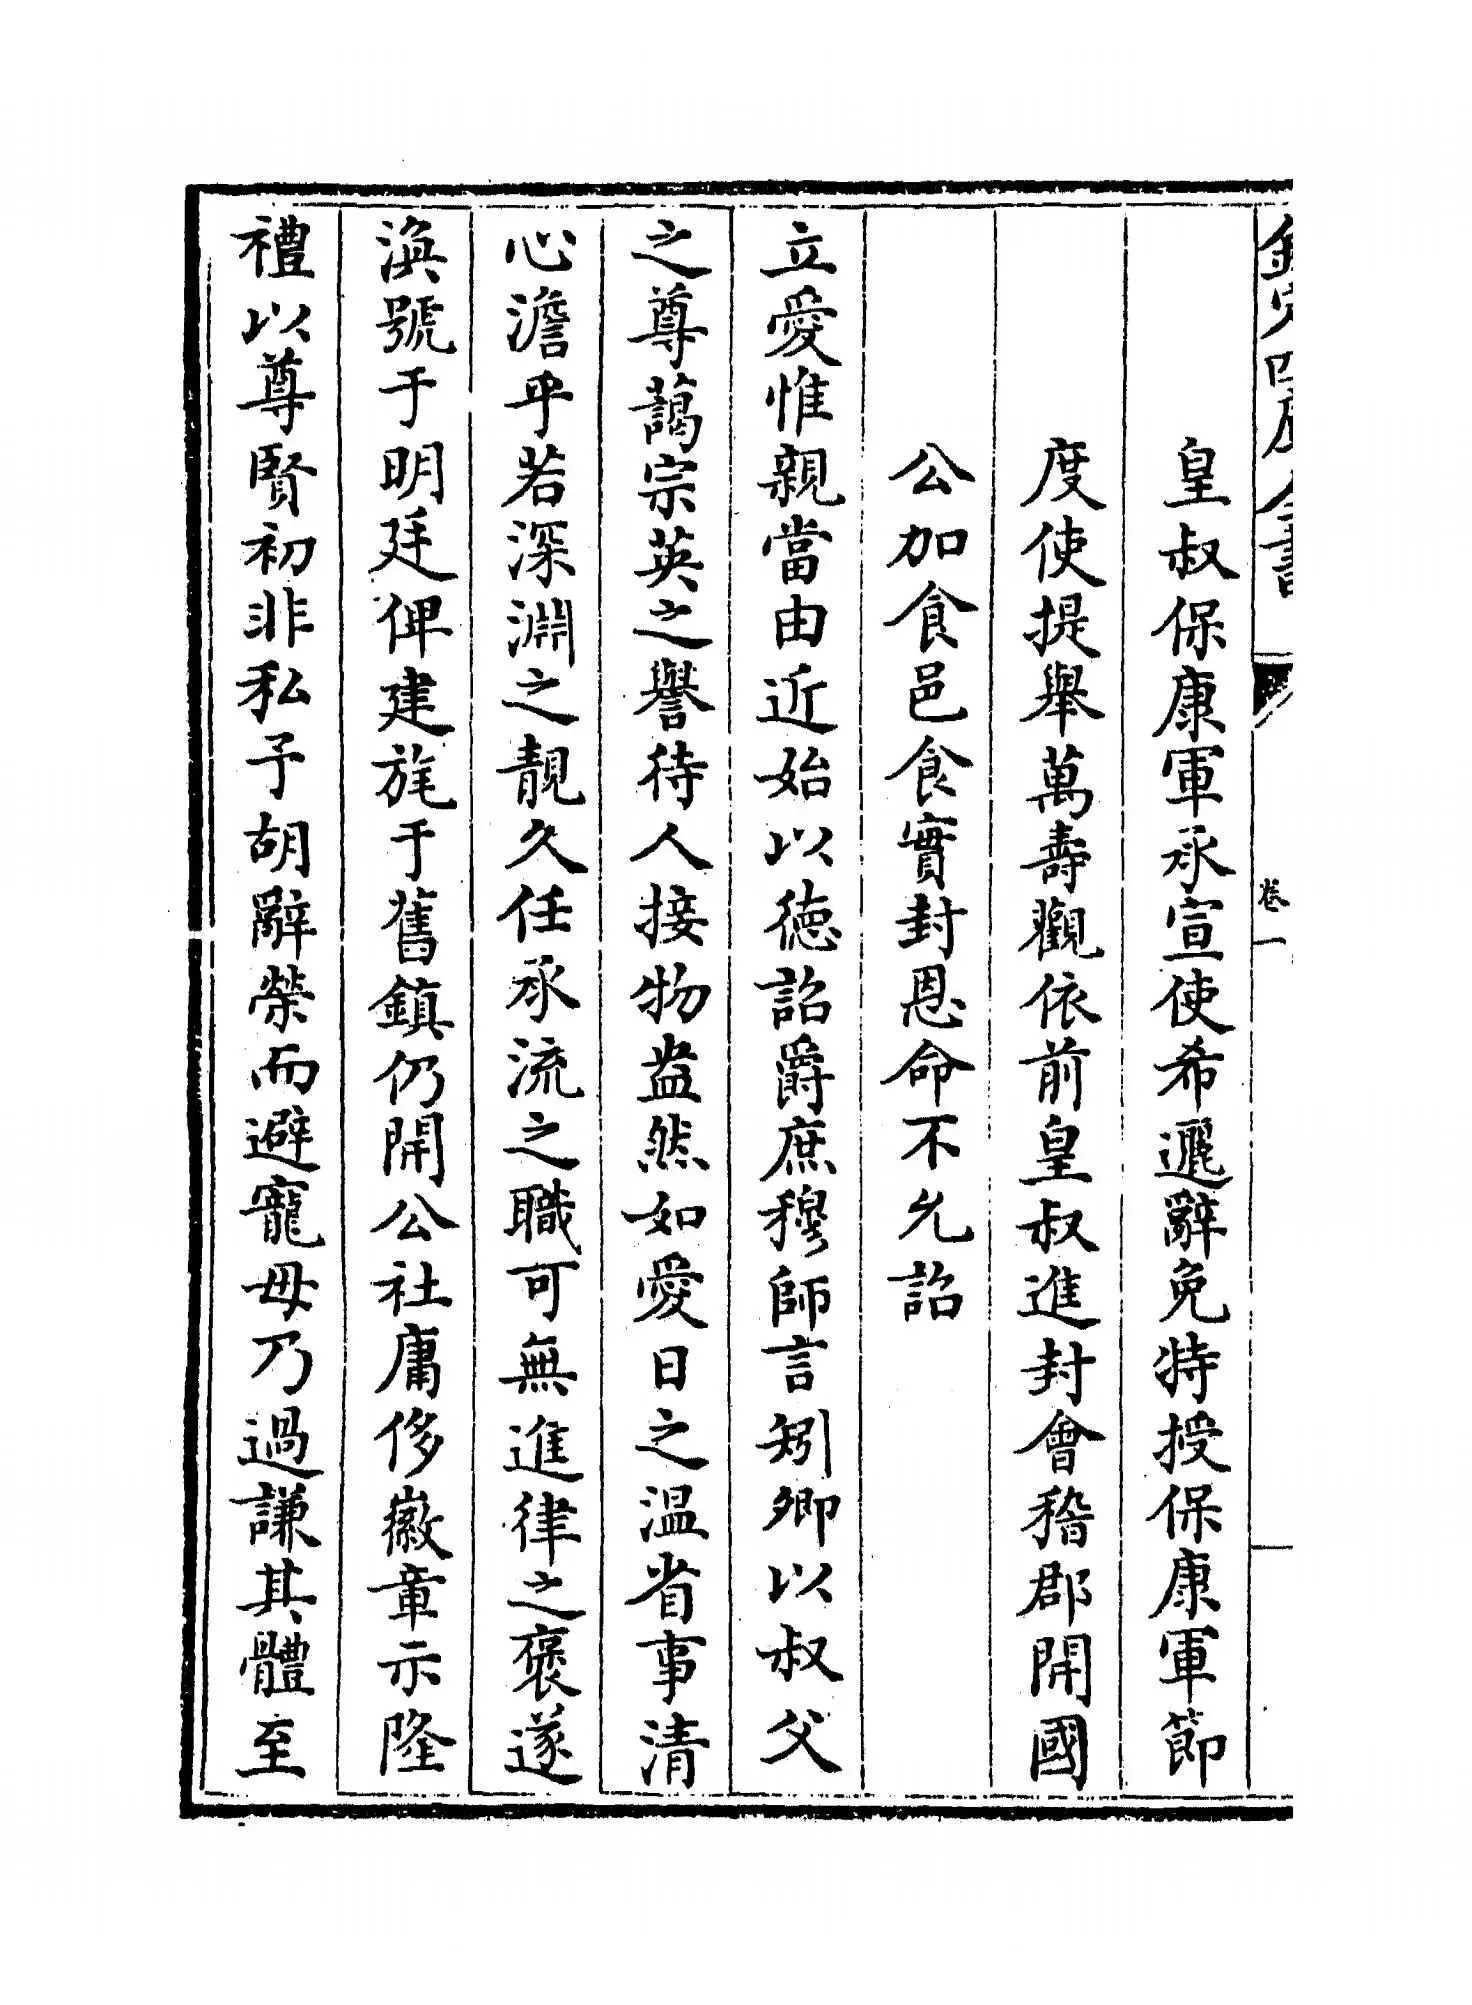 欽定四庫全書
卷一
皇叔保康軍承宣使希邐辭免特授保康軍節
度使提舉萬壽觀依前皇叔進封會稽郡開國
公加食邑食實封恩命不允詔
立愛惟親當由近始以德詔爵庶穆師言矧卿以叔父
之尊藹宗英之譽待人接物盎然如愛日之温省事清
心澹乎若深淵之靚久任承流之職可無進律之褒遂
渙號于明廷俾建旄于舊鎮仍開公社庸侈徽章示隆
禮以尊賢初非私予胡辭榮而避寵毋乃過謙其體至